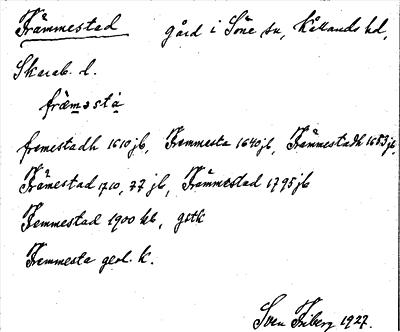 Främmestad gård i Söne sn, Kållands hd,
Skarab. l.
främsta
fremestadh 1610 jb, Fremmesta 1640 jb, Främmestadh 1683 jb,
Främestad 1710, 77 jb, Främmestad 1795 jb
Femmestad 1900 kb, gstk
Fremmesta geol. k.
Sven Friberg 1927.